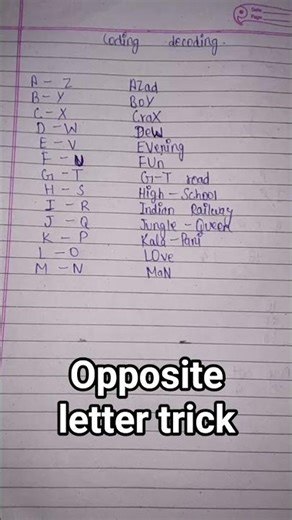 Date
Page
Coding decoding.
A - Z Azad
B - Y BoY
C - X CraX
D - W DeW
E - V EVening
F - U FUn
G - T G-T road
H - S High - School
I - R Indian Railway
J - Q Jungle - Queen
K - P Kala - Pani
L - O LOve
M - N MaN
Opposite
letter trick